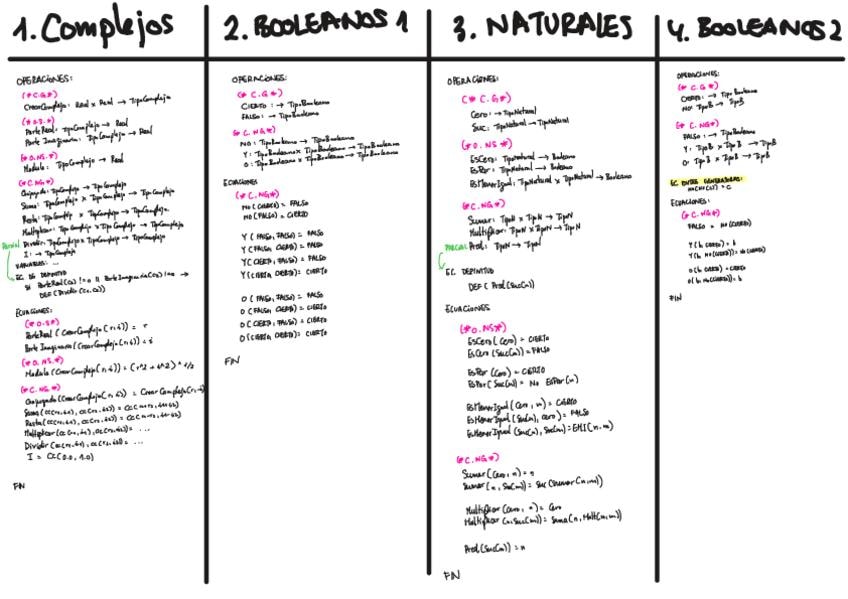 1. Complejos
OPERACIONES:
(* C.G *)
CrearComplejo: Real x Real → TipoComplejo
(* O.S. *)
ParteReal: TipoComplejo → Real
Parte Imaginaria: TipoComplejo → Real
(* O.NS. *)
Modulo: TipoComplejo → Real
(* C.NG *)
Conjugado: TipoComplejo → TipoComplejo
Suma: TipoComplejo x TipoComplejo → TipoComplejo
Resta: TipoComplejo x TipoComplejo → TipoComplejo
Multiplicar: TipoComplejo x TipoComplejo → TipoComplejo
Parcial Dividir: TipoComplejo x TipoComplejo → TipoComplejo
I: → TipoComplejo
VARIABLES: ...
EC DE DEFINITUD
SI ParteReal(c2) != 0 || ParteImaginaria(c2) != 0 →
DEF (Dividir (c1, c2))
ECUACIONES:
(* O.S *)
ParteReal (CrearComplejo (r, i)) = r
Parte Imaginaria (CrearComplejo (r, i)) = i
(* O. NS. *)
Modulo (CrearComplejo (r, i)) = (r^2 + i^2)^1/2
(* C. NG. *)
Conjugado (CrearComplejo (r, i)) = CrearComplejo (r, -i)
Suma (CC(r1, i1), CC(r2, i2)) = CC(r1+r2, i1+i2)
Resta (CC(r1, i1), CC(r2, i2)) = CC(r1-r2, i1-i2)
Multiplicar (CC(r1, i1), CC(r2, i2)) = ...
Dividir (CC(r1, i1), CC(r2, i2)) = ...
I = CC(0.0, 1.0)
FIN
2. BOOLEANOS 1
OPERACIONES:
(* C.G *)
CIERTO: → TipoBooleano
FALSO: → TipoBooleano
(* C. NG *)
NO: TipoBooleano → TipoBooleano
Y: TipoBooleano x TipoBooleano → TipoBooleano
O: TipoBooleano x TipoBooleano → TipoBooleano
ECUACIONES
(* C. NG *)
NO (CIERTO) = FALSO
NO (FALSO) = CIERTO
Y (FALSO, FALSO) = FALSO
Y (FALSO, CIERTO) = FALSO
Y (CIERTO, FALSO) = FALSO
Y (CIERTO, CIERTO) = CIERTO
O (FALSO, FALSO) = FALSO
O (FALSO, CIERTO) = CIERTO
O (CIERTO, FALSO) = CIERTO
O (CIERTO, CIERTO) = CIERTO
FIN
3. NATURALES
OPERACIONES:
(* C. G *)
Cero: → TipoNatural
Suc: TipoNatural → TipoNatural
(* O. NS *)
EsCero: TipoNatural → Booleano
EsPar: TipoNatural → Booleano
EsMenorIgual: TipoNatural x TipoNatural → Booleano
(* C. NG *)
Sumar: TipoN x TipoN → TipoN
Multiplicar: TipoN x TipoN → TipoN
PARCIAL Pred: TipoN → TipoN
EC. DEFINITUD
DEF (Pred (Suc(n))
ECUACIONES
(* O. NS *)
EsCero (Cero) = CIERTO
EsCero (Suc(n)) = FALSO
EsPar (Cero) = CIERTO
EsPar (Suc(n)) = NO EsPar(n)
EsMenorIgual (Cero, n) = CIERTO
EsMenorIgual (Suc(n), Cero) = FALSO
EsMenorIgual (Suc(n), Suc(m)) = EMI (n, m)
(* C. NG *)
Sumar (Cero, n) = n
Sumar (n, Suc(m)) = Suc (Sumar (n, m))
Multiplicar (Cero, n) = Cero
Multiplicar (n, Suc(m)) = Suma (n, Mult(n, m))
Pred (Suc(n)) = n
FIN
4. BOOLEANOS 2
OPERACIONES:
(* C. G *)
CIERTO: → TipoBooleano
NO: TipoB → TipoB
(* C. NG *)
FALSO: → TipoBooleano
Y: TipoB x TipoB → TipoB
O: TipoB x TipoB → TipoB
EC ENTRE GENERADORAS:
ECUACIONES:
(* C. NG *)
FALSO = NO (CIERTO)
Y (b, CIERTO) = b
Y (b, NO(CIERTO)) = NO (CIERTO)
O (b, CIERTO) = CIERTO
O (b, NO(CIERTO)) = b
FIN